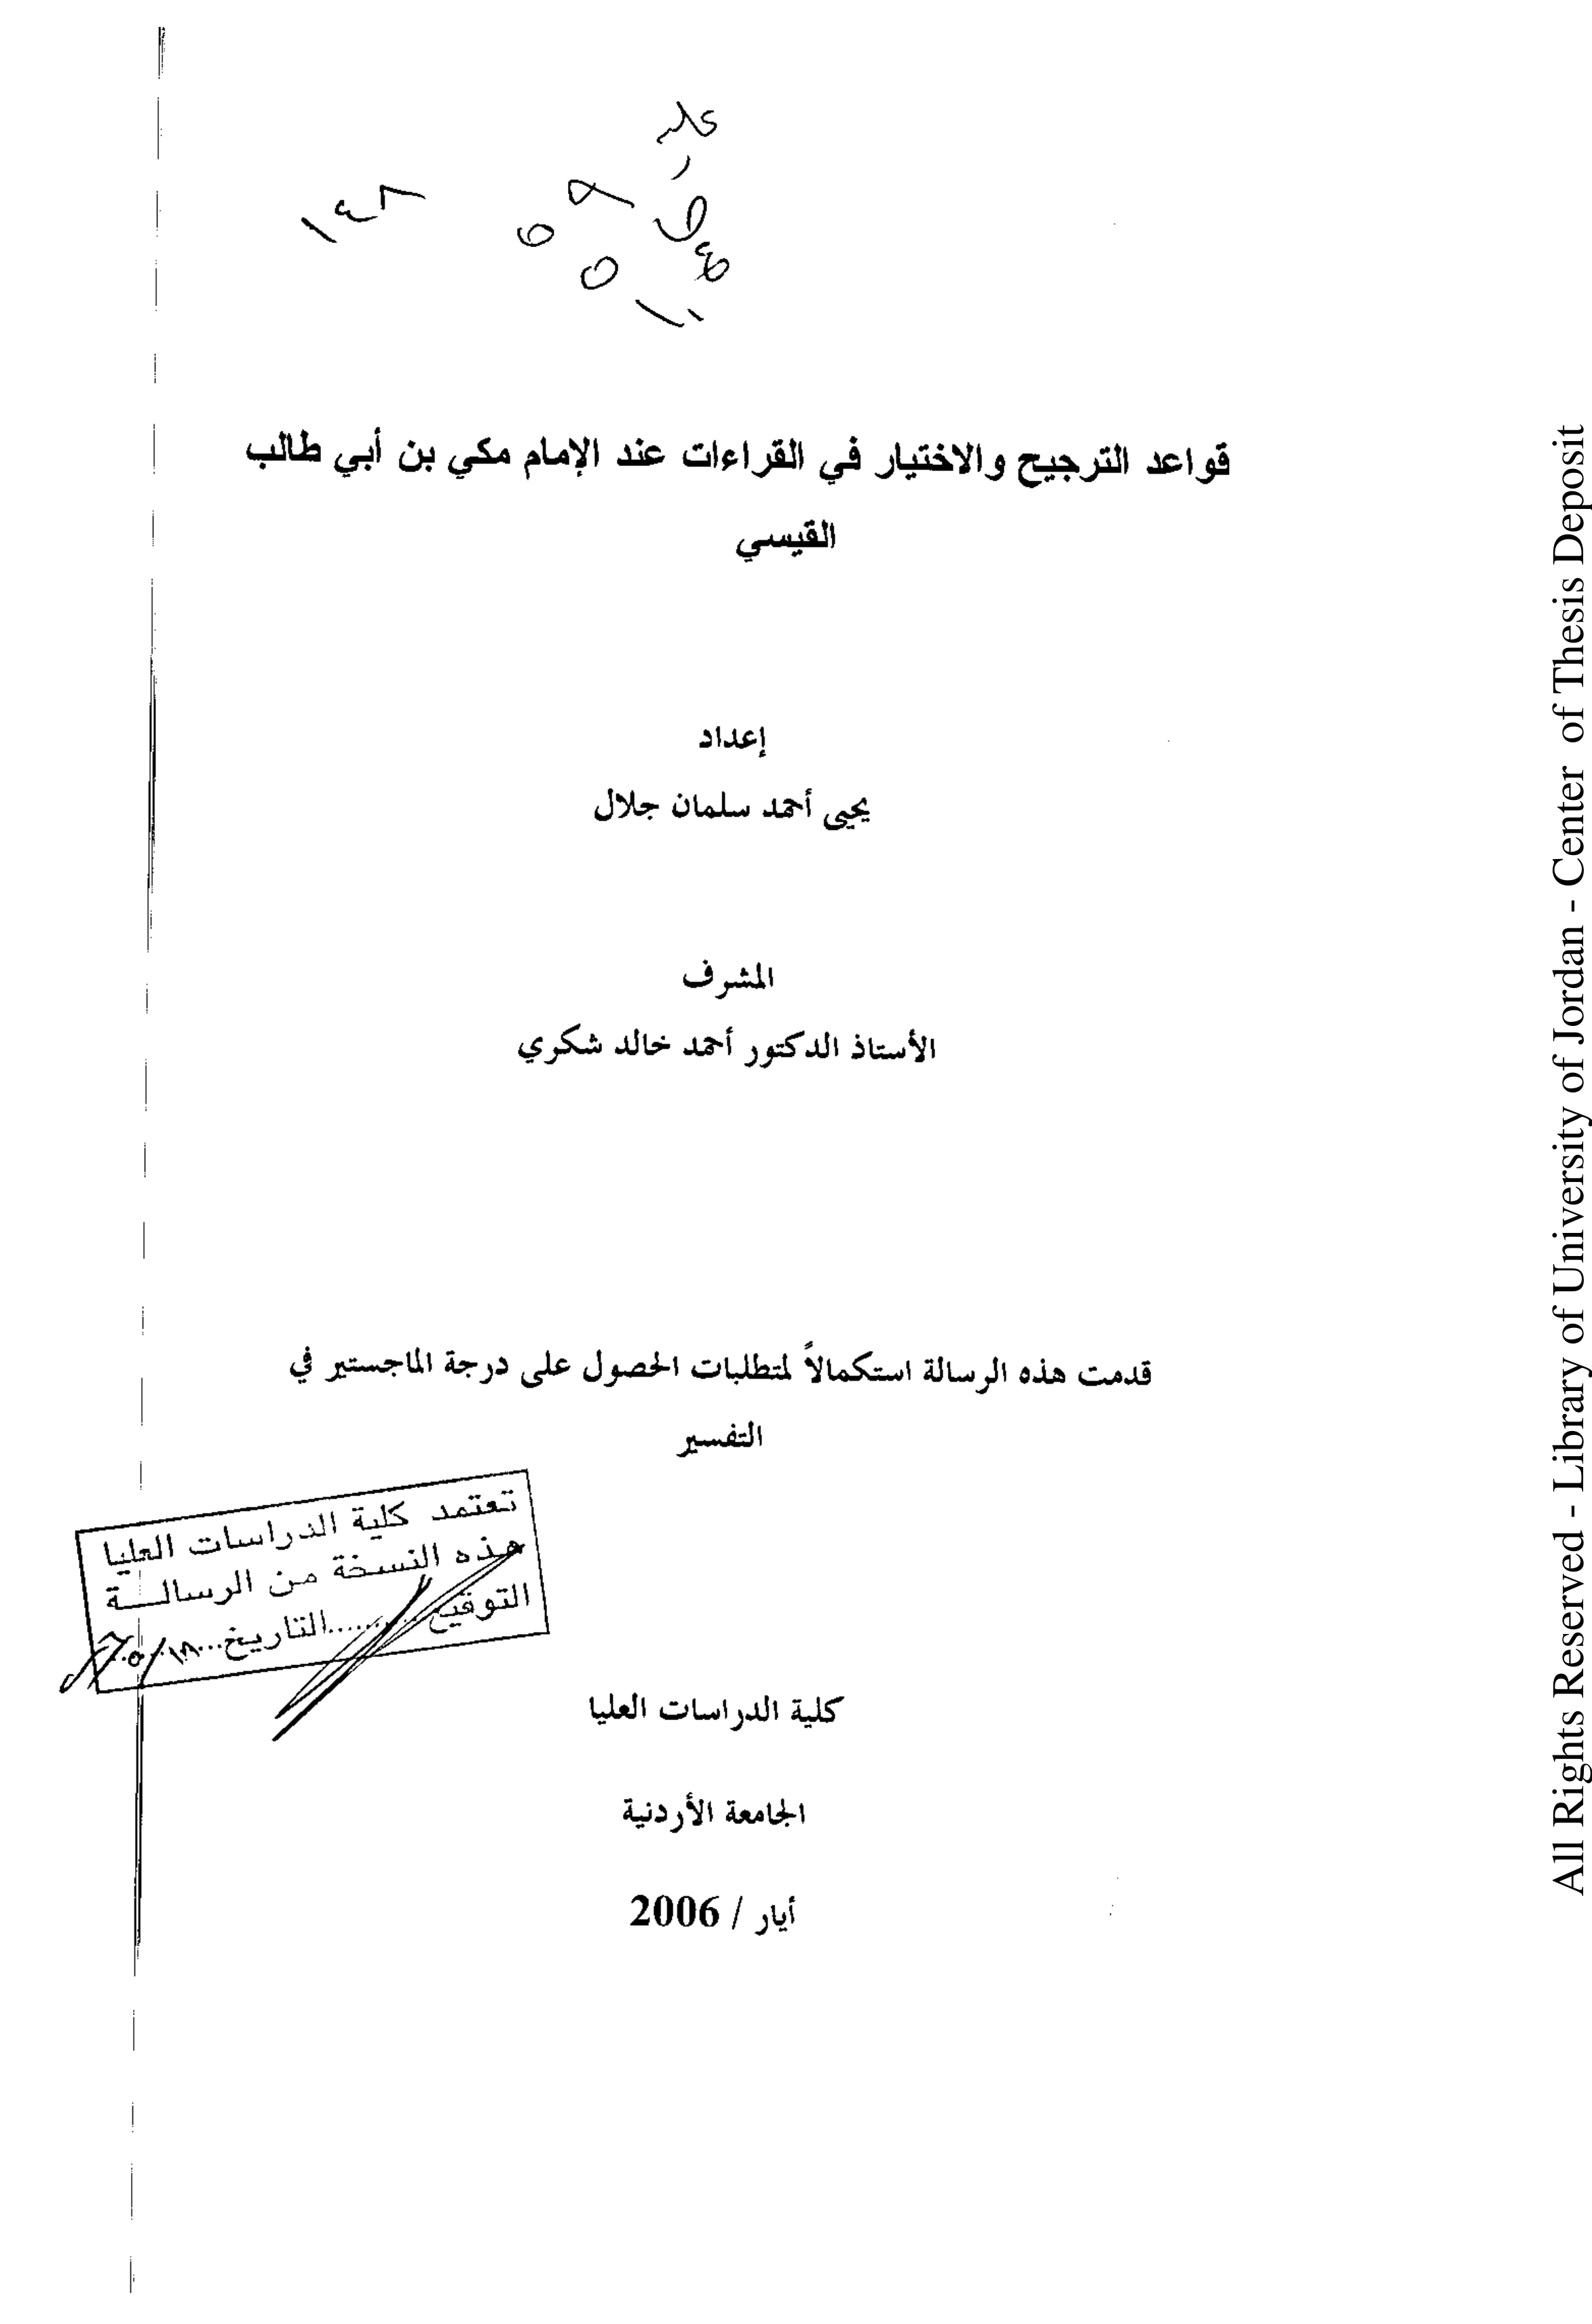 ١٤٨
قواعد الترجيح والاختيار في القراءات عند الإمام مكي بن أبي طالب
القيسي
إعداد
يحيى أحمد سلمان جلال
المشرف
الأستاذ الدكتور أحمد خالد شكري
قدمت هذه الرسالة استكمالاً لمتطلبات الحصول على درجة الماجستير في
التفسير
تعتمد كلية الدراسات العليا
هذه النسخة من الرسالـــة
التوقيع..........التاريخ....
كلية الدراسات العليا
الجامعة الأردنية
أيار / 2006
All Rights Reserved - Library of University of Jordan - Center of Thesis Deposit